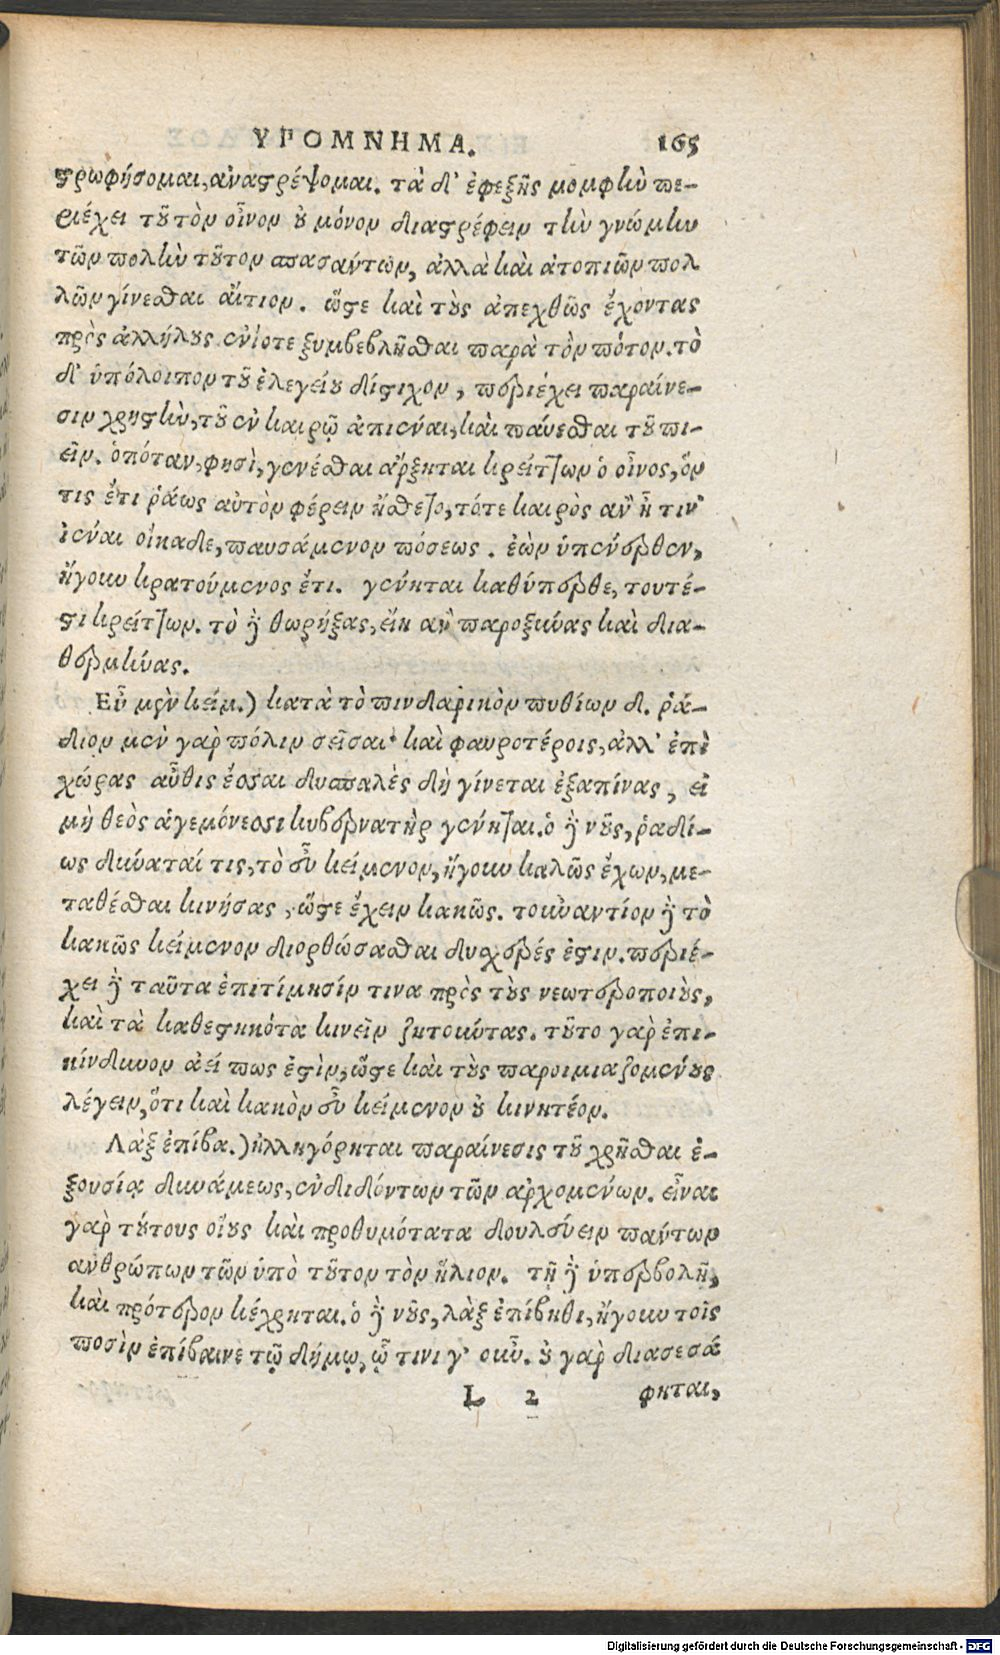 ΥΠΟΜΝΗΜΑ. 165
στρωφήσομαι, ἀναστρέψομαι. τὰ δ' ἐφεξῆς μομφὴν πε-
ριέχει τοῦ τὸν οἶνον οὐ μόνον διαστρέφειν τὴν γνώμην
τῶν πολὺν τοῦτον σπασάντων, ἀλλὰ καὶ ἀτοπιῶν πολ
λῶν γίνεσθαι αἴτιον. ὥστε καὶ τοὺς ἀπεχθῶς ἔχοντας
πρὸς ἀλλήλους ἐνίοτε ξυμβεβλῆσθαι παρὰ τὸν πότον. τὸ
δ' ὑπόλοιπον τοῦ ἐλεγείου δίστιχον, περιέχει παραίνε-
σιν χρηστὴν, τοῦ ἐν καιρῷ ἀπιέναι, καὶ παύεσθαι τοῦ πι-
εῖν. ὁπόταν, φησὶ, γενέσθαι ἄρξηται κρείττων ὁ οἶνος, ὅν
τις ἔτι ῥάως αὐτὸν φέρειν ᾔσθετο, τότε καιρὸς ἂν ᾖ τιν'
ἰέναι οἴκαδε, παυσάμενον πόσεως. ἐὼν ὑπένερθεν,
ἤγουν κρατούμενος ἔτι. γένηται καθύπερθε, τουτέ-
στι κρείττων. τὸ δὲ θωρήξας, εἴη ἂν παροξύνας καὶ δια-
θερμήνας.
Εὖ μὲν κείμ.) κατὰ τὸ πινδαρικὸν πυθίων δ. ῥά-
διον μὲν γὰρ πόλιν σεῖσαι καὶ φαυροτέροις, ἀλλ' ἐπὶ
χώρας αὖθις ἕσσαι δυσπαλὲς δὴ γίνεται ἐξαπίνας, εἰ
μὴ θεὸς ἁγεμόνεσσι κυβερνατὴρ γένηται. ὁ δὲ νοῦς, ῥαδί-
ως δύναταί τις, τὸ εὖ κείμενον, ἤγουν καλῶς ἔχων, με-
ταθέσθαι κινήσας, ὥστε ἔχειν κακῶς. τοὐναντίον δὲ τὸ
κακῶς κείμενον διορθώσασθαι δυσχερές ἐστιν. περιέ-
χει δὲ ταῦτα ἐπιτίμησίν τινα πρὸς τοὺς νεωτεροποιοὺς,
καὶ τὰ καθεστηκότα κινεῖν ζητοῦντας. τοῦτο γὰρ ἐπι-
κίνδυνον ἀεί πως ἐστὶν, ὥστε καὶ τοὺς παροιμιαζομένους
λέγειν, ὅτι καὶ κακὸν εὖ κείμενον οὐ κινητέον.
Λὰξ ἐπίβα.) ἠλληγόρηται παραίνεσις τοῦ χρῆσθαι ἐ-
ξουσίᾳ δυνάμεως, ἐνδιδόντων τῶν ἀρχομένων. εἶναι
γὰρ τούτους οἵους καὶ προθυμότατα δουλεύειν πάντων
ἀνθρώπων τῶν ὑπὸ τοῦτον τὸν ἥλιον. τῇ δὲ ὑπερβολῇ,
καὶ πρότερον κέχρηται. ὁ δὲ νοῦς, λὰξ ἐπίβηθι, ἤγουν τοῖς
ποσὶν ἐπίβαινε τῷ δήμῳ, ᾧ τινι γ' οὖν. οὐ γὰρ διασεσά
L 2 φηται,
Digitalisierung gefördert durch die Deutsche Forschungsgemeinschaft - DFG